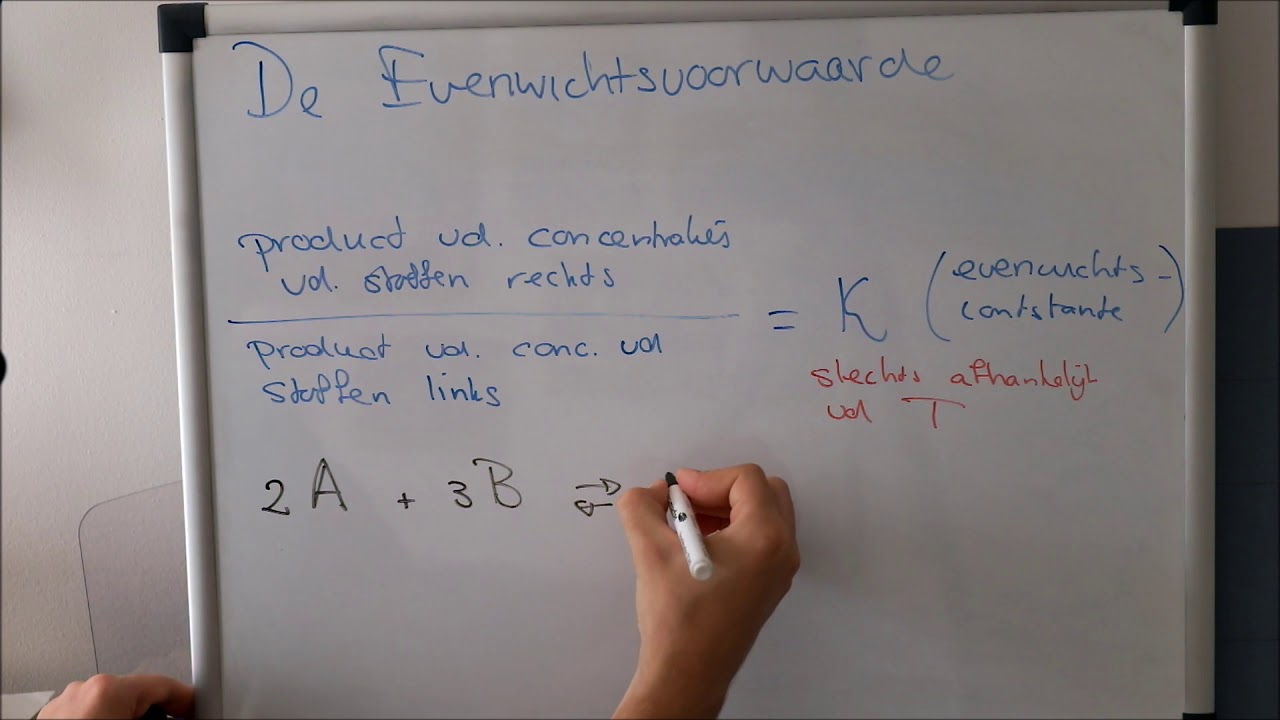 De Evenwichtsvoorwaarde
product vd. concentraties
vd. stoffen rechts
product vd. conc. vd
stoffen links
= K (evenwichts-
contstante)
slechts afhankelijk
vd T
2A + 3B ⇄